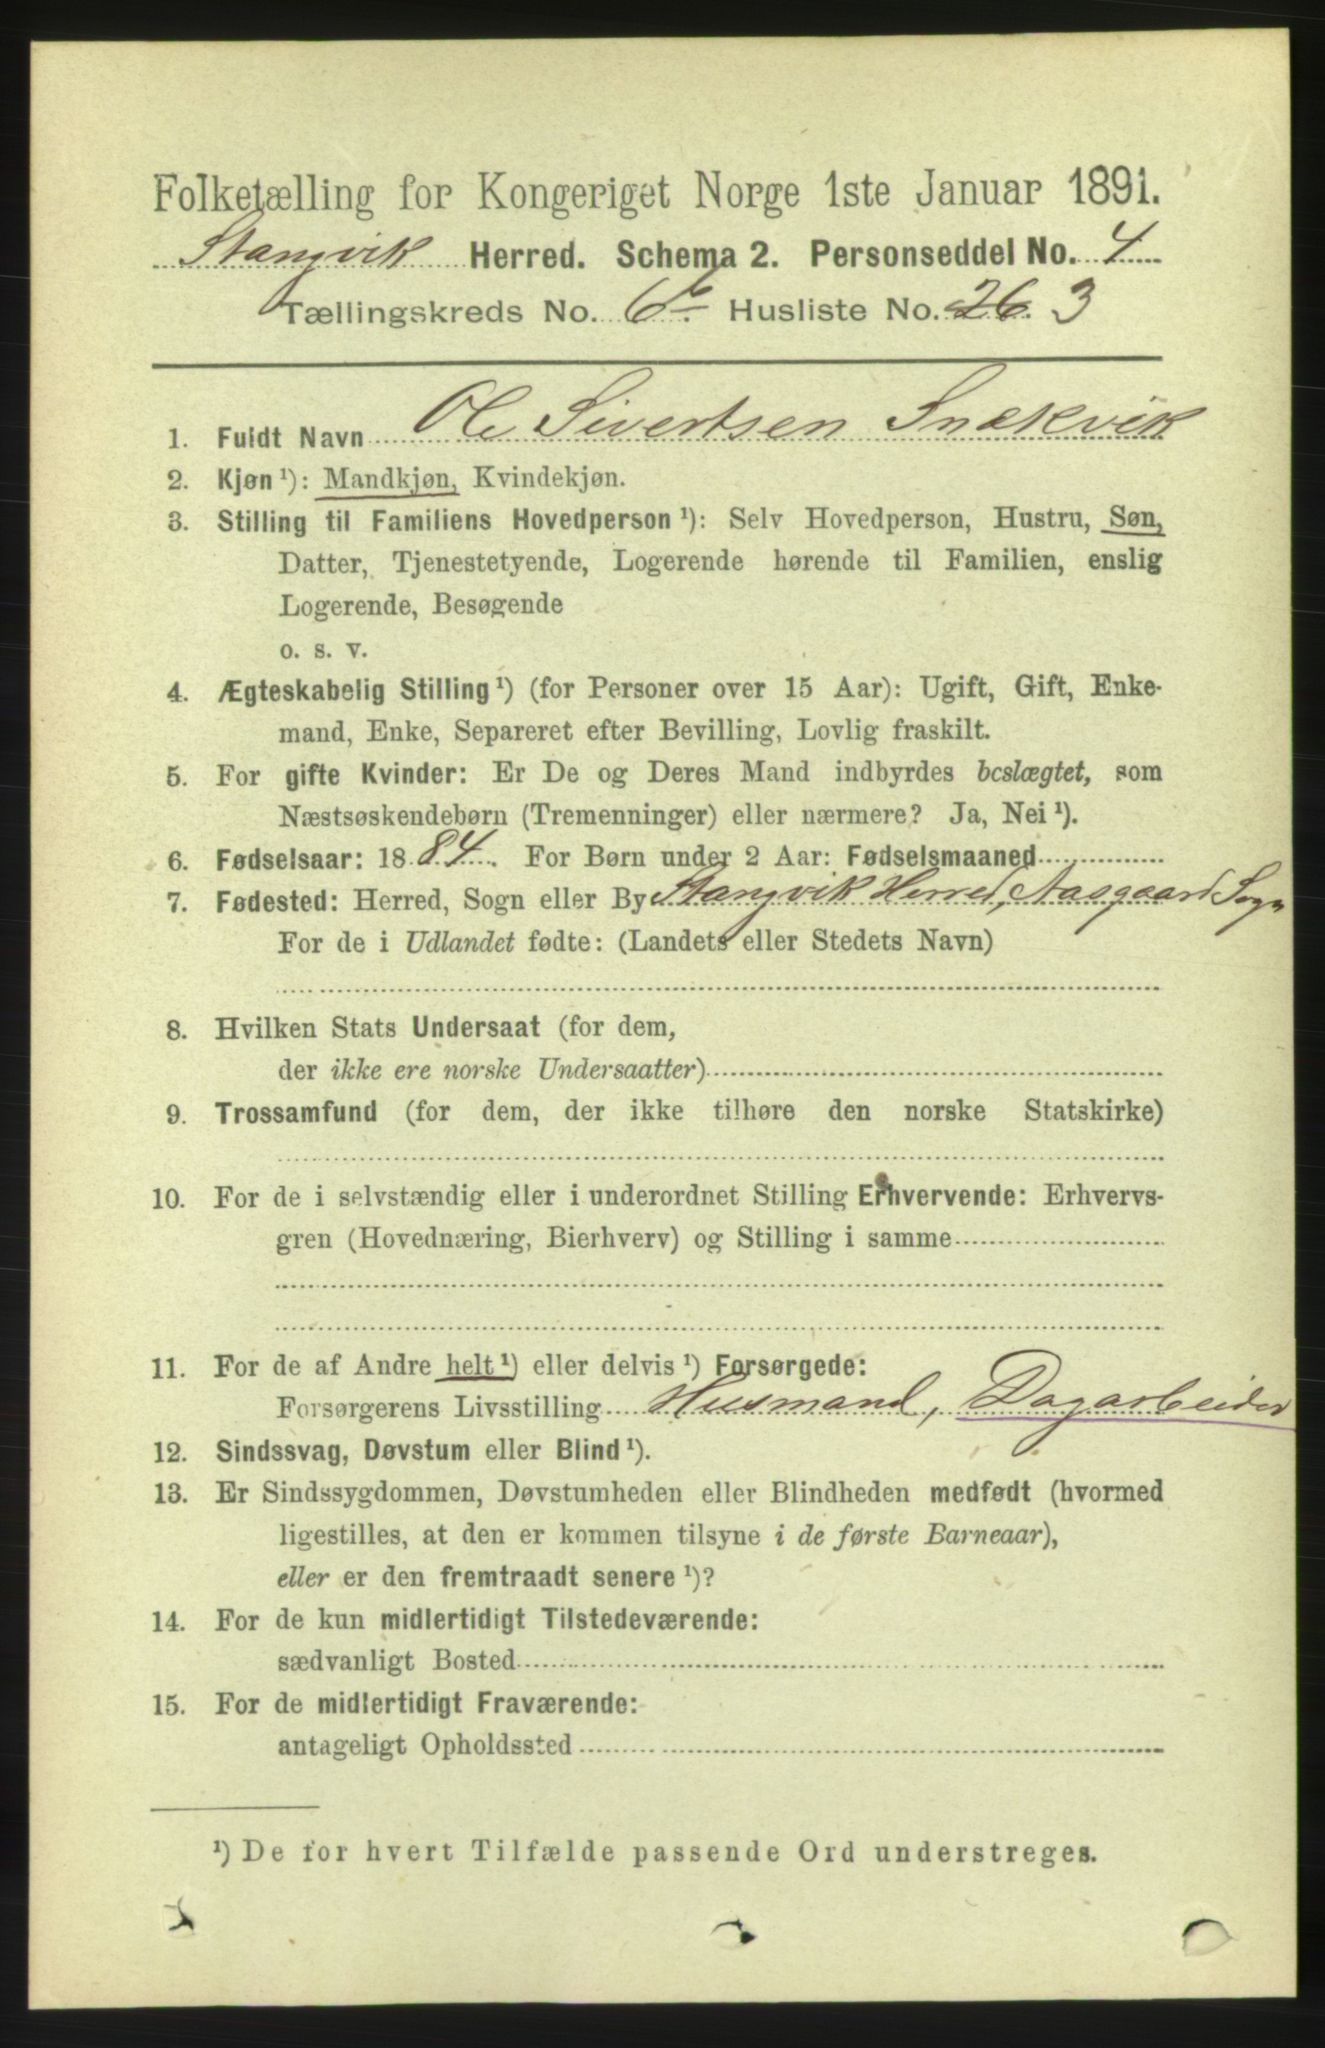 Folketælling for Kongeriget Norge 1ste Januar 1891.
Stangvik Herred. Schema 2. Personseddel No. 4
Tællingskreds No. 6 Husliste No. 26. 3
1. Fuldt Navn Ole Sivertsen Snekvik
2. Kjøn ¹): Mandkjøn, Kvindekjøn.
3. Stilling til Familiens Hovedperson ¹): Selv Hovedperson, Hustru, Søn,
Datter, Tjenestetyende, Logerende hørende til Familien, enslig
Logerende, Besøgende
o. s. v.
4. Ægteskabelig Stilling ¹) (for Personer over 15 Aar): Ugift, Gift, Enke-
mand, Enke, Separeret efter Bevilling, Lovlig fraskilt.
5. For gifte Kvinder: Er De og Deres Mand indbyrdes beslægtet, som
Næstsøskendebørn (Tremenninger) eller nærmere? Ja, Nei ¹).
6. Fødselsaar: 1884. For Børn under 2 Aar: Fødselsmaaned
7. Fødested: Herred, Sogn eller By Stangvik Herred, Aasgaard Sogn
For de i Udlandet fødte: (Landets eller Stedets Navn)
8. Hvilken Stats Undersaat (for dem,
der ikke ere norske Undersaatter)
9. Trossamfund (for dem, der ikke tilhøre den norske Statskirke)
10. For de i selvstændig eller i underordnet Stilling Erhvervende: Erhvervs-
gren (Hovednæring, Bierhverv) og Stilling i samme
11. For de af Andre helt ¹) eller delvis ¹) Forsørgede:
Forsørgerens Livsstilling Husmand, Dagarbeider
12. Sindssvag, Døvstum eller Blind ¹).
13. Er Sindssygdommen, Døvstumheden eller Blindheden medfødt (hvormed
ligestilles, at den er kommen tilsyne i de første Barneaar),
eller er den fremtraadt senere ¹)?
14. For de kun midlertidigt Tilstedeværende:
sædvanligt Bosted
15. For de midlertidigt Fraværende:
antageligt Opholdssted
¹) De for hvert Tilfælde passende Ord understreges.